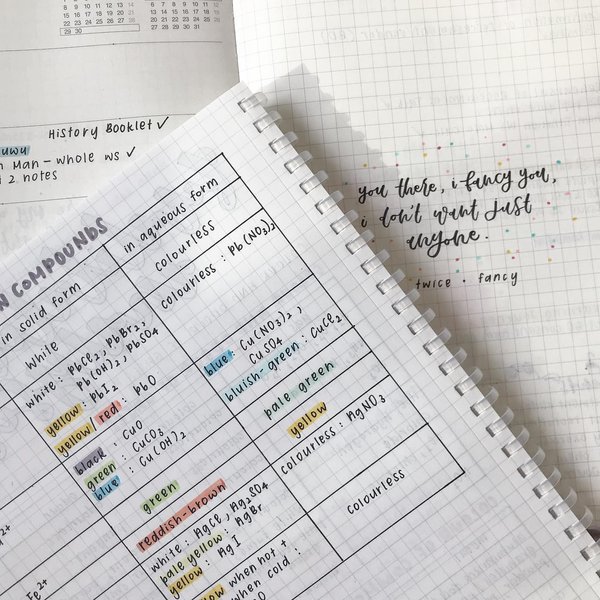 8 9 10 11 12 13 14
15 16 17 18 19 20 21
22 23 24 25 26 27 28
29 30
History Booklet ✓
uwu
Man - whole ws ✓
2 notes
you there, i fancy you,
i don't want just
anyone.
twice · fancy
N COMPOUNDS
in solid form
in aqueous form
white
colourless
white : PbCl2, PbBr2,
Pb(OH)2, PbSO4
yellow : PbI2
yellow/ red : PbO
colourless : Pb(NO3)2
black : CuO
green : CuCO3
blue : Cu(OH)2
blue : Cu(NO3)2,
CuSO4
bluish-green : CuCl2
green
pale green
reddish-brown
yellow
white : AgCl, Ag2SO4
pale yellow : AgBr
yellow : AgI
colourless : AgNO3
yellow when hot +
when cold :
colourless
2+
Fe2+